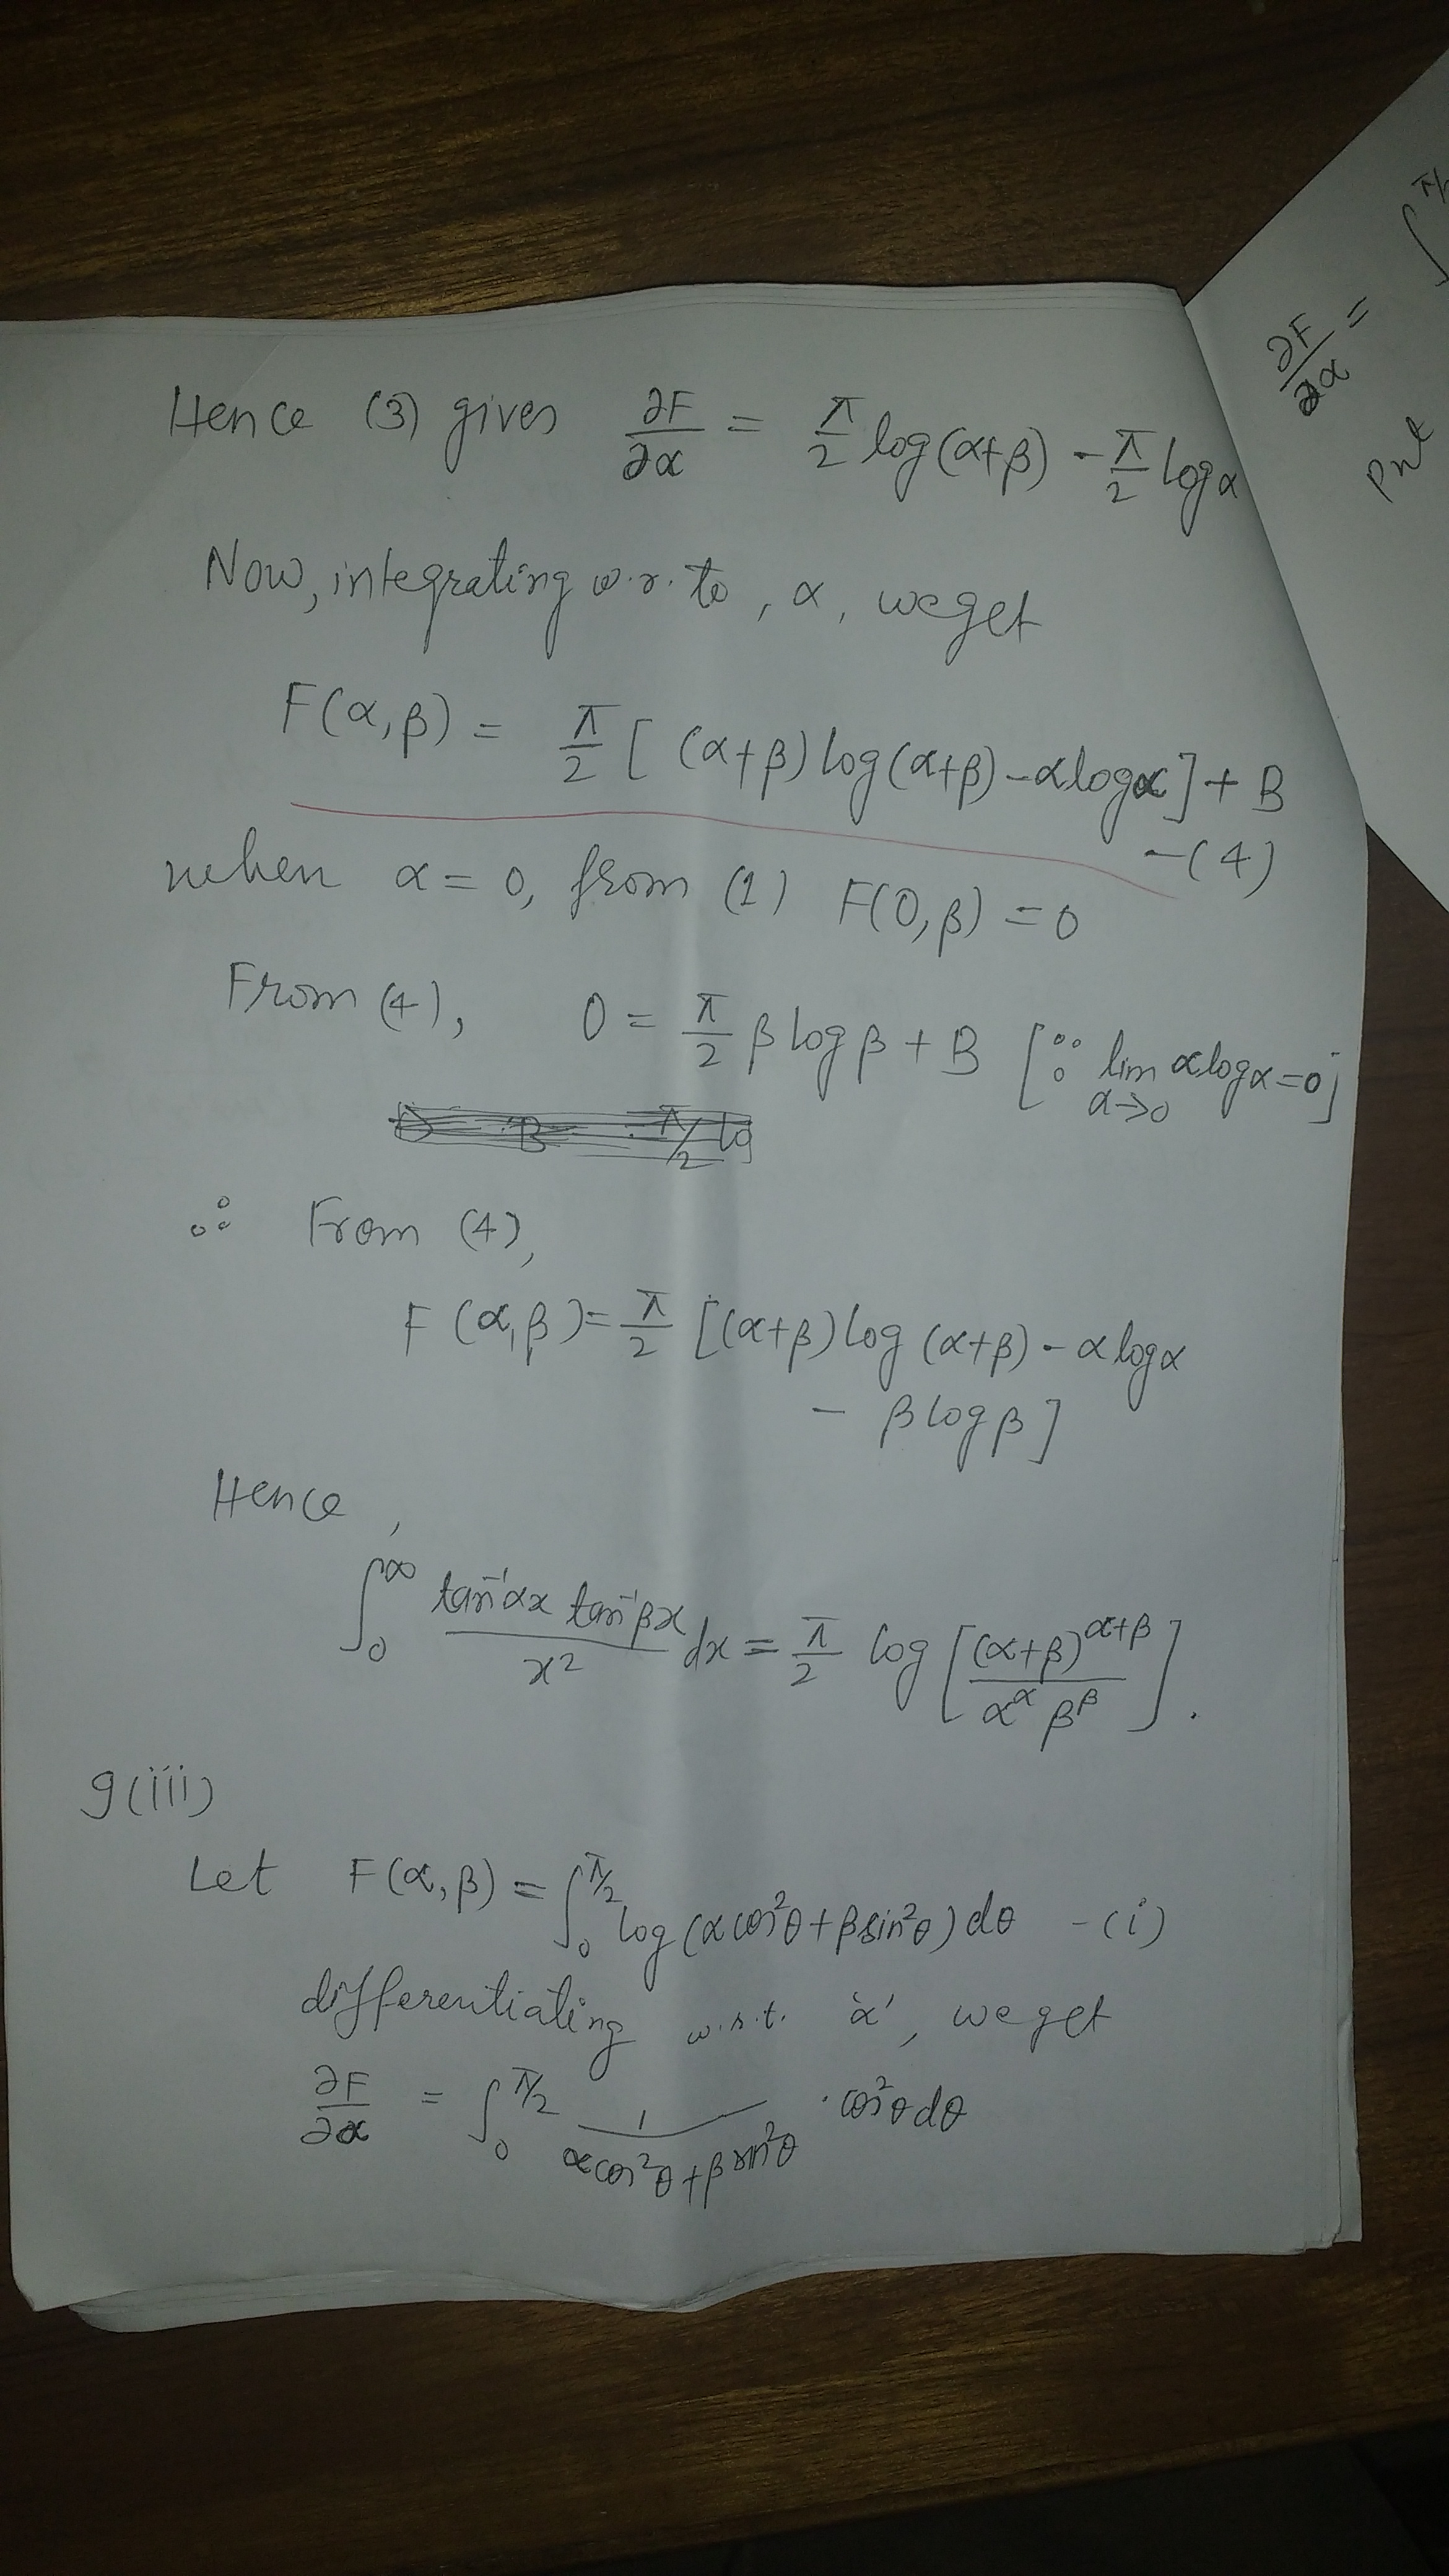 Hence (3) gives ∂F/∂α = π/2 log(α+β) - π/2 log α
Now, integrating w.r. to, α, we get
F(α,β) = π/2 [ (α+β) log(α+β) - α log α ] + B
-(4)
when α = 0, from (1) F(0,β) = 0
From (4), 0 = π/2 β log β + B [∵ lim α→0 α log α = 0]
∴ From (4),
F (α,β) = π/2 [(α+β) log (α+β) - α log α
- β log β ]
Hence,
∫₀^∞ tan⁻¹αx tan⁻¹βx / x² dx = π/2 log [ (α+β)^(α+β) / α^α β^β ].
9(iii)
Let F(α,β) = ∫₀^(π/2) log (α cos²θ + β sin²θ) dθ -(i)
differentiating w.r.t. 'α', we get
∂F/∂α = ∫₀^(π/2) 1 / (α cos²θ + β sin²θ) · cos²θ dθ
∂F/∂α = ∫
Put